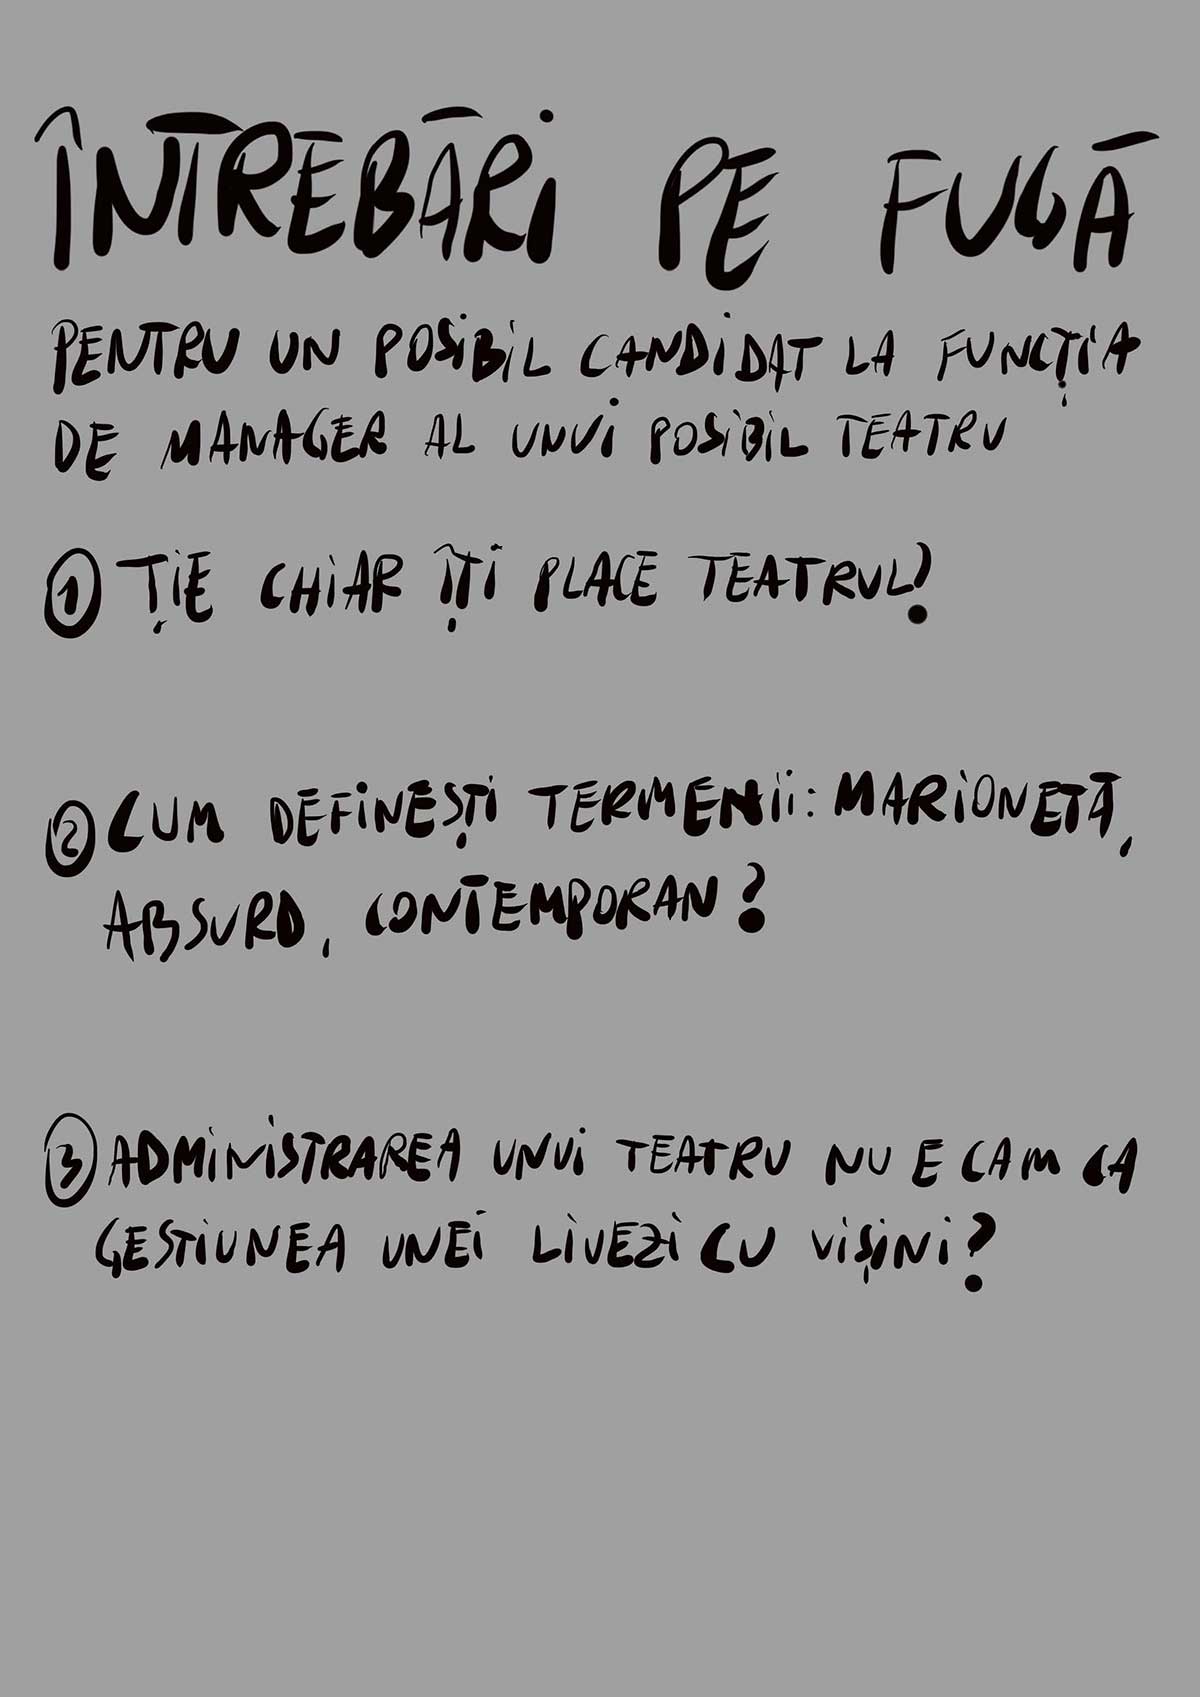 ÎNTREBĂRI PE FUGĂ
PENTRU UN POSIBIL CANDIDAT LA FUNCȚIA
DE MANAGER AL UNUI POSIBIL TEATRU
1 ȚIE CHIAR ÎȚI PLACE TEATRUL?
2 CUM DEFINEȘTI TERMENII: MARIONETĂ,
ABSURD, CONTEMPORAN?
3 ADMINISTRAREA UNUI TEATRU NU E CAM CA
GESTIUNEA UNEI LIVEZI CU VIȘINI?